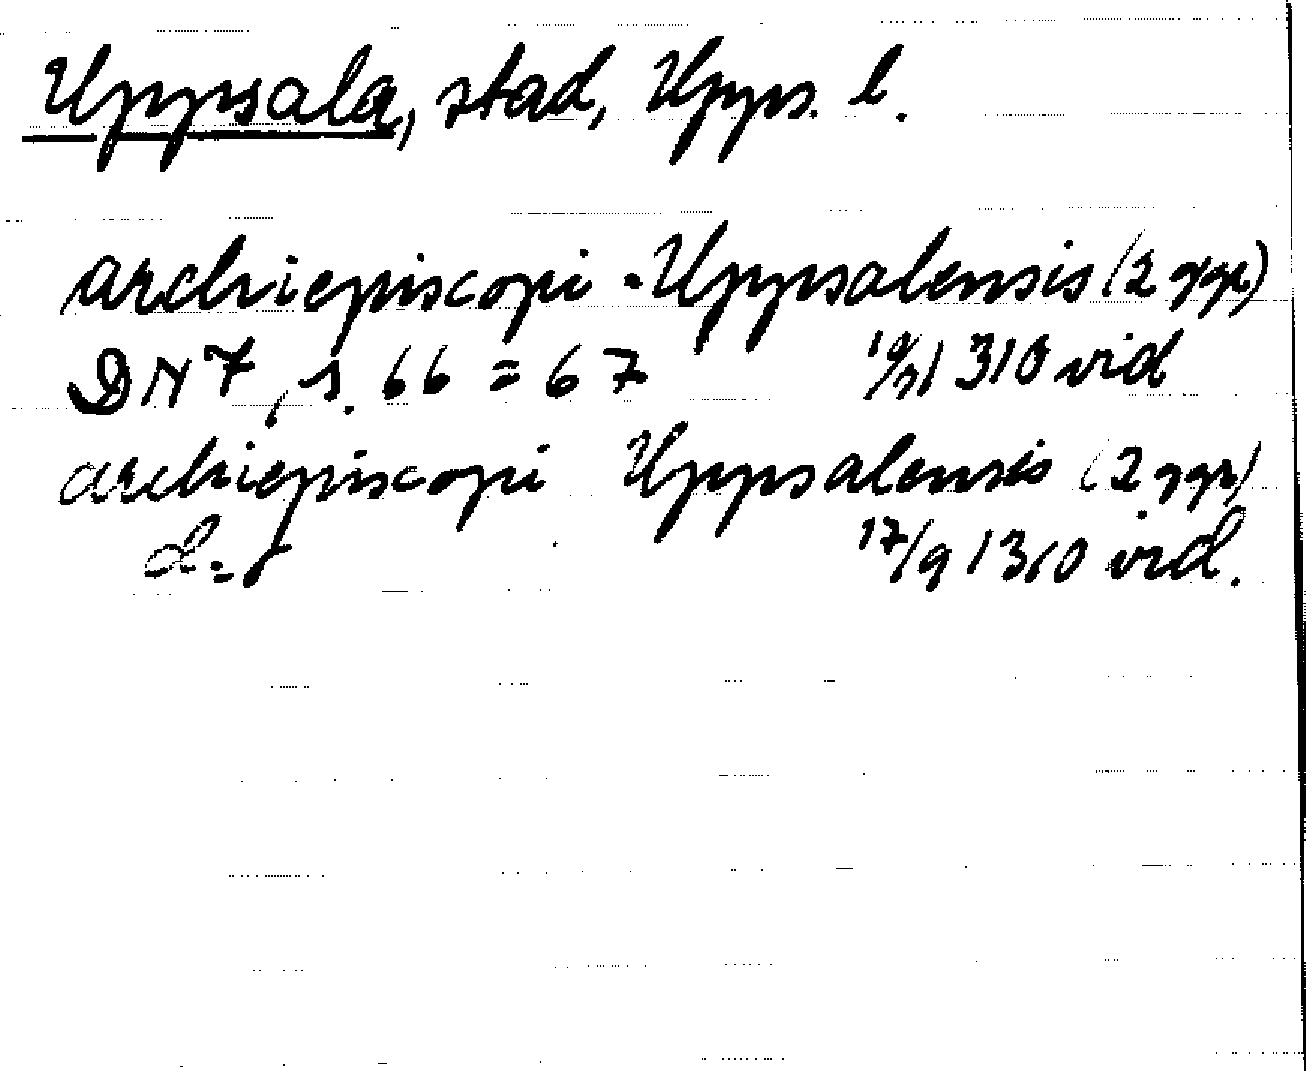 Uppsala, stad, Upps. l.
archiepiscopi - Uppsalensis (2 ggr)
DN 7, s. 66 = 67 1310 vid
archiepiscopi Uppsalensis (2 ggr)
17/9 1310 vid.